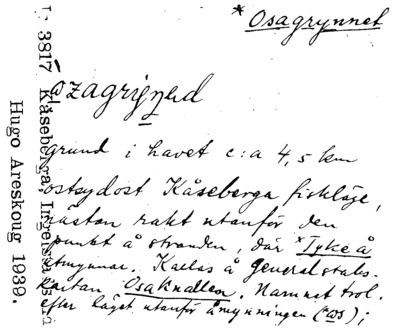 * Osagrynnet
L. 3817 Kåseberga, Ingelstads hd
Hugo Areskoug 1939.
grund i havet c:a 4,5 km
ostsydost Kåseberga fiskläge,
nästan rakt utanför den
punkt å stranden, där *Tykeå
utmynnar. Kallas å Generalstabs-
kartan Osaknallen. Namnet trol.
efter läget utanför åmynningen